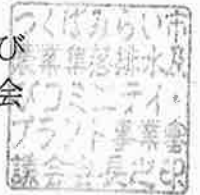 び
会
つくばみらい市及
農業集落排水
コミュニティ
プラント事業
議会会長之印